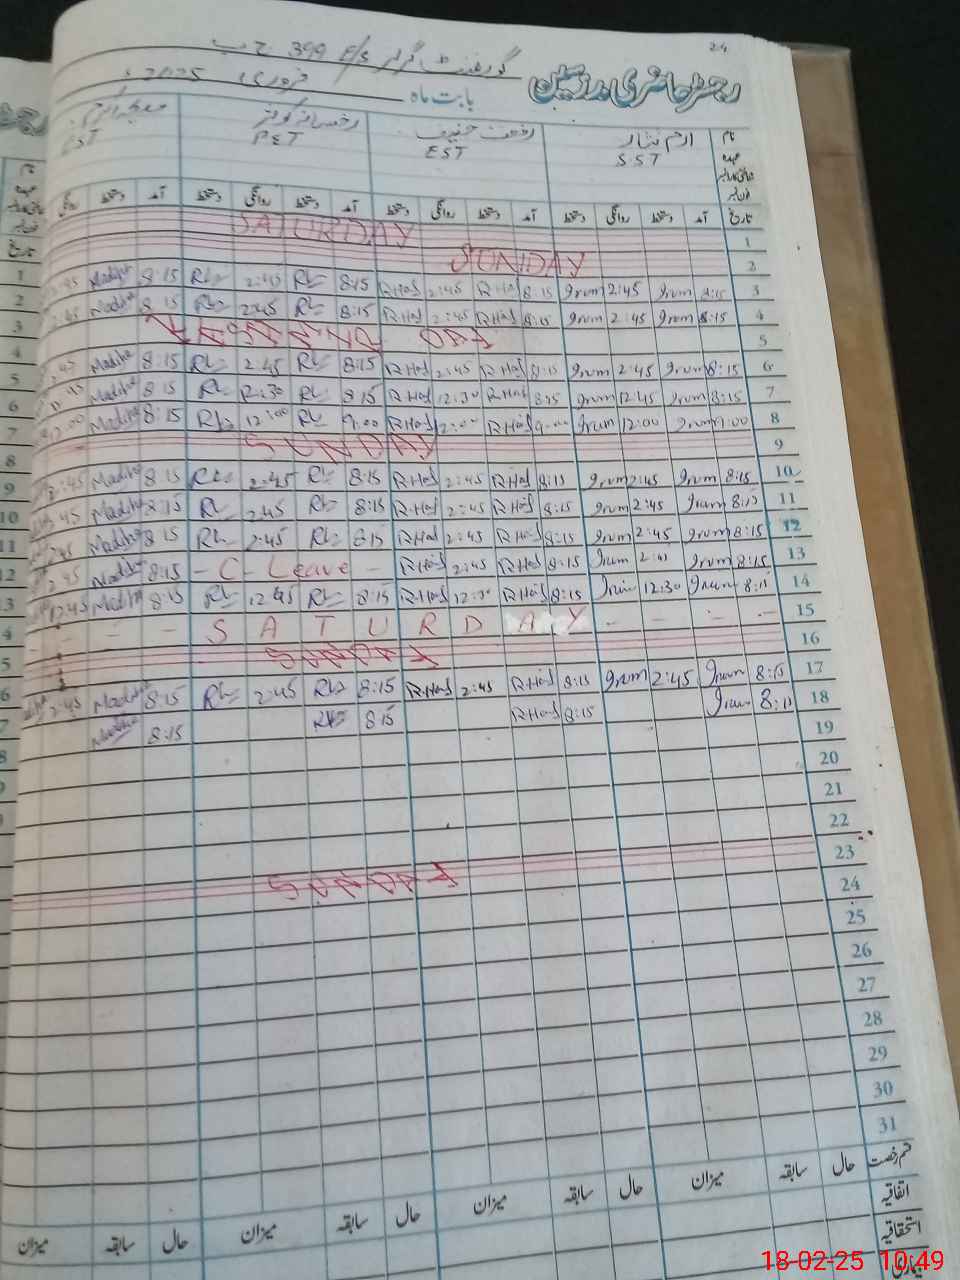 24
گورنمنٹ گرلز E/S 399 ج ب
رجسٹر حاضری مدرسین
بابت ماہ فروری 2025
نام ارم نثار رفعت حنیف رخسانہ کوثر
عہدہ SST EST PET EST
تاریخ آمد دستخط روانگی دستخط آمد دستخط روانگی دستخط آمد دستخط روانگی دستخط آمد دستخط روانگی
1 SATURDAY
2 SUNDAY
3 8:15 Irum 2:45 Irum 8:15 R.Haf 2:45 R.Haf 8:15 RL 2:45 RL 8:15 Madiha 2:45
4 8:15 Irum 2:45 Irum 8:15 R.Haf 2:45 R.Haf 8:15 RL 2:45 RL 8:15 Madiha 2:45
5 DAY
6 8:15 Irum 2:45 Irum 8:15 R.Haf 2:45 R.Haf 8:15 RL 2:45 RL 8:15 Madiha 2:45
7 8:15 Irum 12:45 Irum 8:15 R.Haf 12:30 R.Haf 8:15 RL 12:30 RL 8:15 Madiha
8 9:00 Irum 12:00 Irum 9:00 R.Haf 12:00 R.Haf 9:00 RL 12:00 RL 8:15 Madiha 12:00
9 SUNDAY
10 8:15 Irum 2:45 Irum 8:15 R.Haf 2:45 R.Haf 8:15 RL 2:45 RL 8:15 Madiha 2:45
11 8:15 Irum 2:45 Irum 8:15 R.Haf 2:45 R.Haf 8:15 RL 2:45 RL 8:15 Madiha 2:45
12 8:15 Irum 2:45 Irum 8:15 R.Haf 2:45 R.Haf 8:15 RL 2:45 RL 8:15 Madiha 2:45
13 8:15 Irum 2:45 Irum 8:15 R.Haf 2:45 R.Haf - C - Leave - 8:15 Madiha 2:45
14 8:15 Irum 12:30 Irum 8:15 R.Haf 12:30 R.Haf 8:15 RL 12:45 RL 8:15 Madiha 12:45
15 - - - S A T U R D A Y - - - -
16 SUNDAY
17 8:15 Irum 2:45 Irum 8:15 R.Haf 2:45 R.Haf 8:15 RL 2:45 RL 8:15 Madiha 2:45
18 8:15 Irum 8:15 R.Haf 8:15 RL 8:15 Madiha
19
20
21
22
23 SUNDAY
24
25
26
27
28
29
30
31
قسم رخصت حال سابقہ میزان حال سابقہ میزان حال سابقہ میزان حال سابقہ میزان
اتفاقیہ
استحقاقیہ
بیماری
18-02-25 10:49